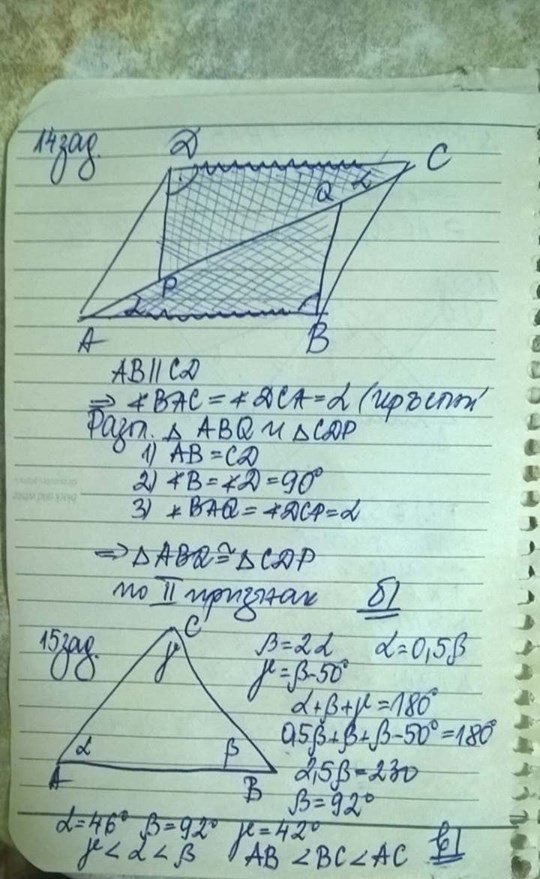 14 зад.
D C
Q α
P
α
A B
AB || CD
⇒ ∢BAC = ∢DCA = α (кръстни
Разгл. △ ABQ и △CDP
1) AB = CD
2) ∢B = ∢D = 90°
3) ∢BAQ = ∢DCP = α
⇒ △ABQ ≅ △CDP
по II признак б)
15 зад.
C
γ
α β
A B
β = 2α α = 0,5β
γ = β - 50°
α + β + γ = 180°
0,5β + β + β - 50° = 180°
2,5β = 230
β = 92°
α = 46° β = 92° γ = 42°
γ < α < β AB < BC < AC в)